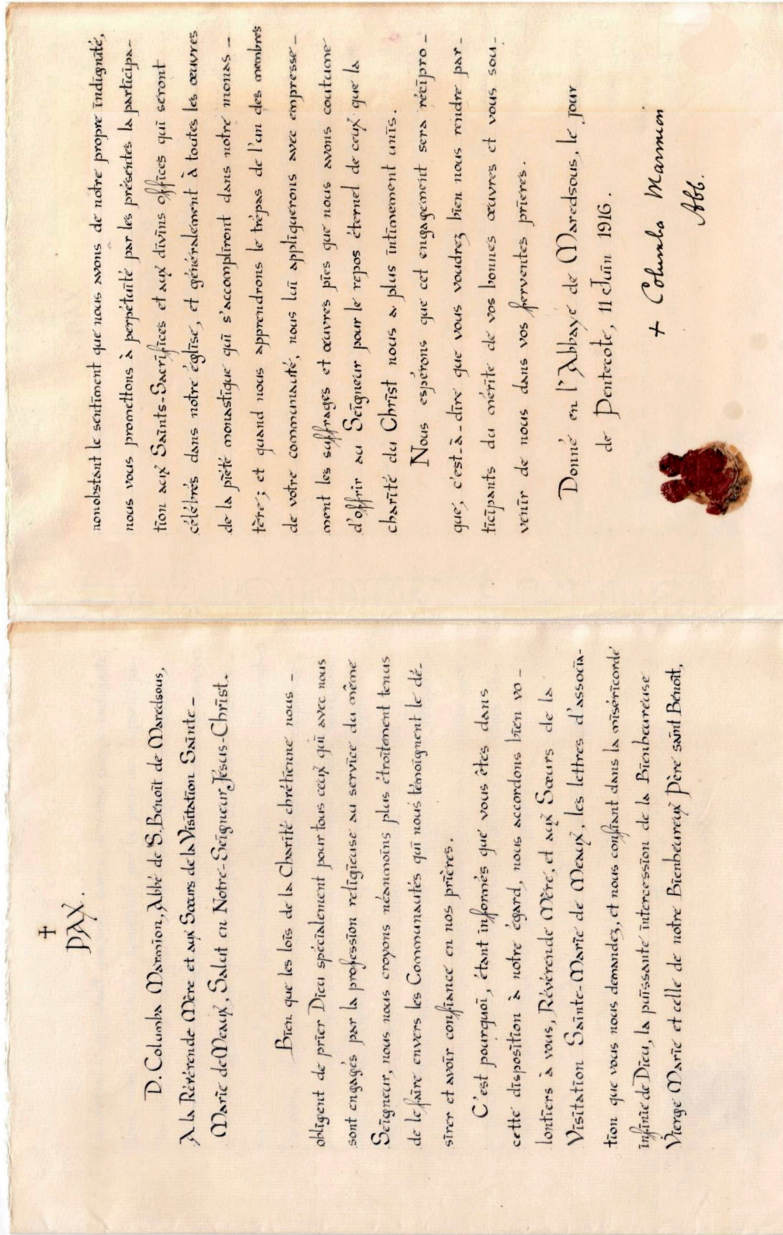 ✝
PAX.
D. Columba Marmion, Abbé de S. Benoît de Maredsous,
A la Révérende Mère et aux Sœurs de la Visitation Sainte-
Marie de Meaux, Salut en Notre-Seigneur Jésus-Christ.
Bien que les lois de la Charité chrétienne nous -
obligent de prier Dieu spécialement pour tous ceux qui avec nous
sont engagés par la profession religieuse au service du même
Seigneur, nous nous croyons néanmoins plus étroitement tenus
de le faire envers les Communautés qui nous témoignent le dé-
sirer et avoir confiance en nos prières.
C'est pourquoi, étant informés que vous êtes dans
cette disposition à notre égard, nous accordons bien vo-
lontiers à vous, Révérende Mère, et aux Sœurs de la
Visitation Sainte-Marie de Meaux, les lettres d'associa-
tion que vous nous demandez, et nous confiant dans la miséricorde
infinie de Dieu, la puissante intercession de la Bienheureuse
Vierge Marie et celle de notre Bienheureux Père saint Benoît,
nonobstant le sentiment que nous avons de notre propre indignité,
nous vous promettons à perpétuité par les présentes la participa-
tion aux Saints-Sacrifices et aux divins offices qui seront
célébrés dans notre église, et généralement à toutes les œuvres
de la piété monastique qui s'accompliront dans notre monas-
tère; et quand nous apprendrons le trépas de l'un des membres
de votre communauté, nous lui appliquerons avec empresse-
ment les suffrages et œuvres pies que nous avons coutume
d'offrir au Seigneur pour le repos éternel de ceux que la
charité du Christ nous a plus intimement unis.
Nous espérons que cet engagement sera récipro-
que, c'est-à-dire que vous voudrez bien nous rendre par-
ticipants du mérite de vos bonnes œuvres et vous sou-
venir de nous dans vos ferventes prières.
Donné en l'Abbaye de Maredsous, le jour
de Pentecote, 11 Juin 1916.
+ Columba Marmion
Abb.